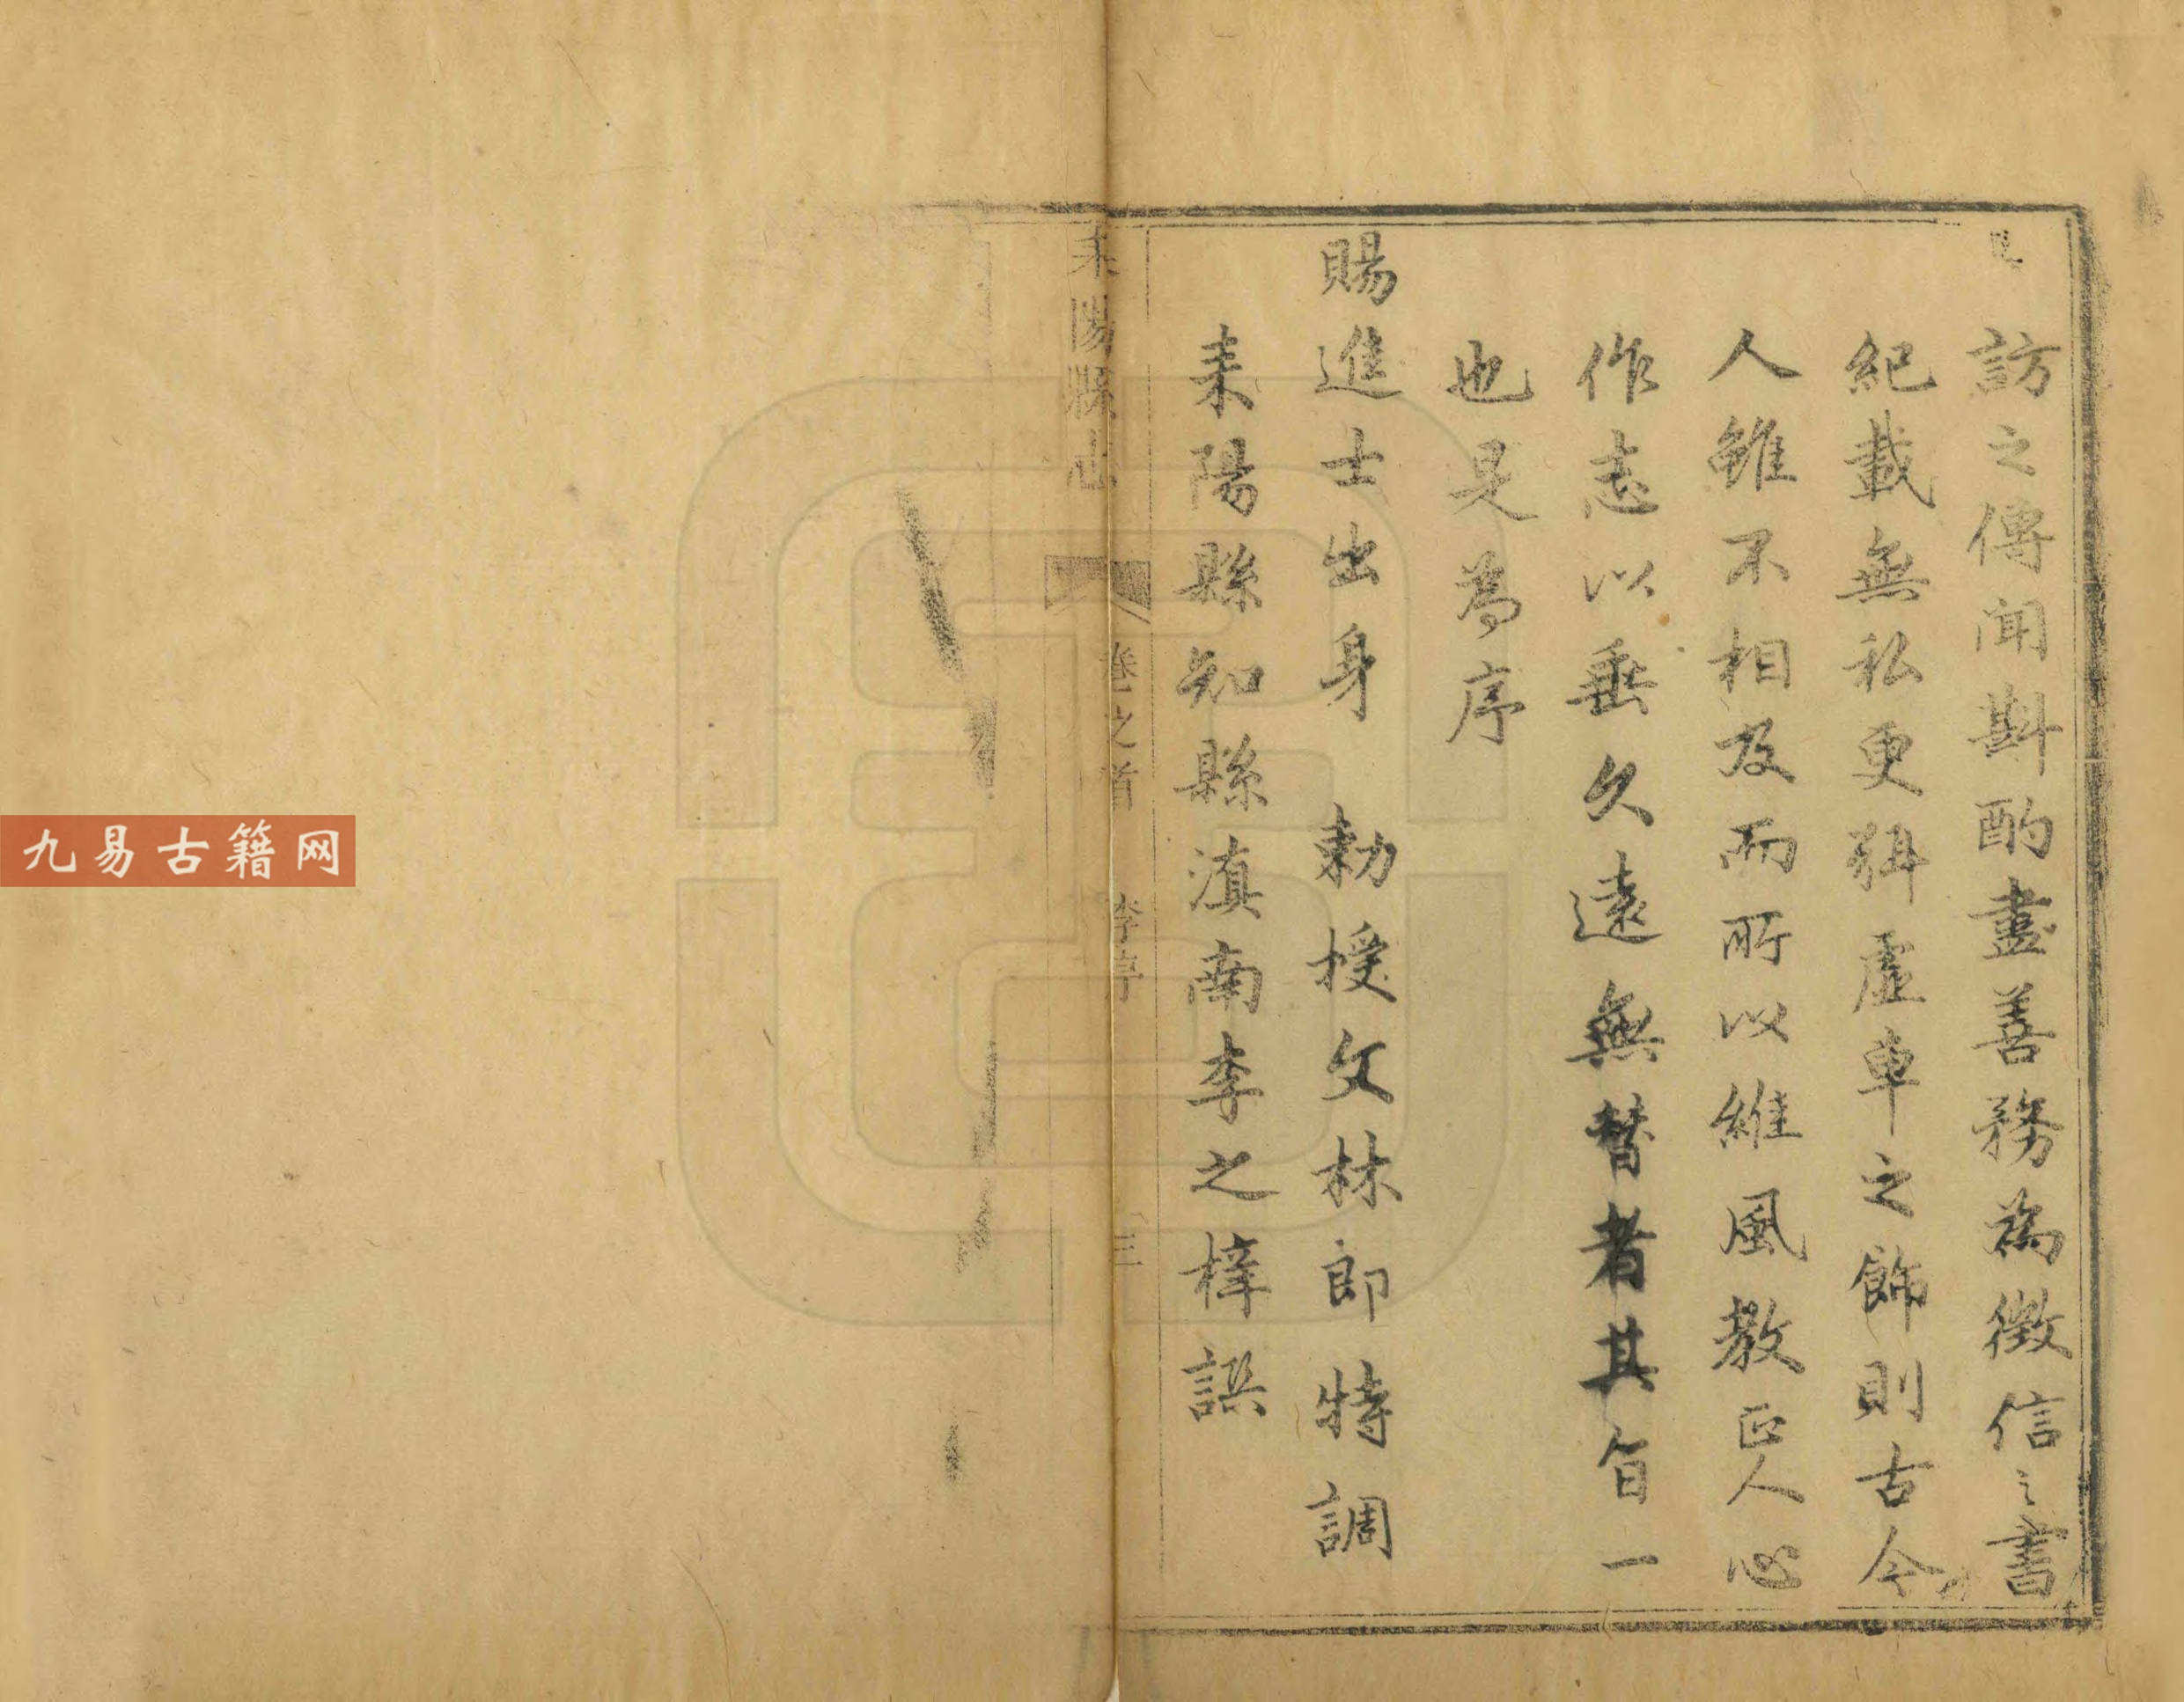 訪之傳聞斟酌盡善務為徵信之書
紀載無私更弭虛車之飾則古今
人雖不相及而所以維風教正人心
作志以垂久遠無替者其旨一
也是為序
賜進士出身　勅授文林郎特調
耒陽縣知縣滇南李之梓譔
耒陽縣志　卷之首　李序　三
九易古籍网